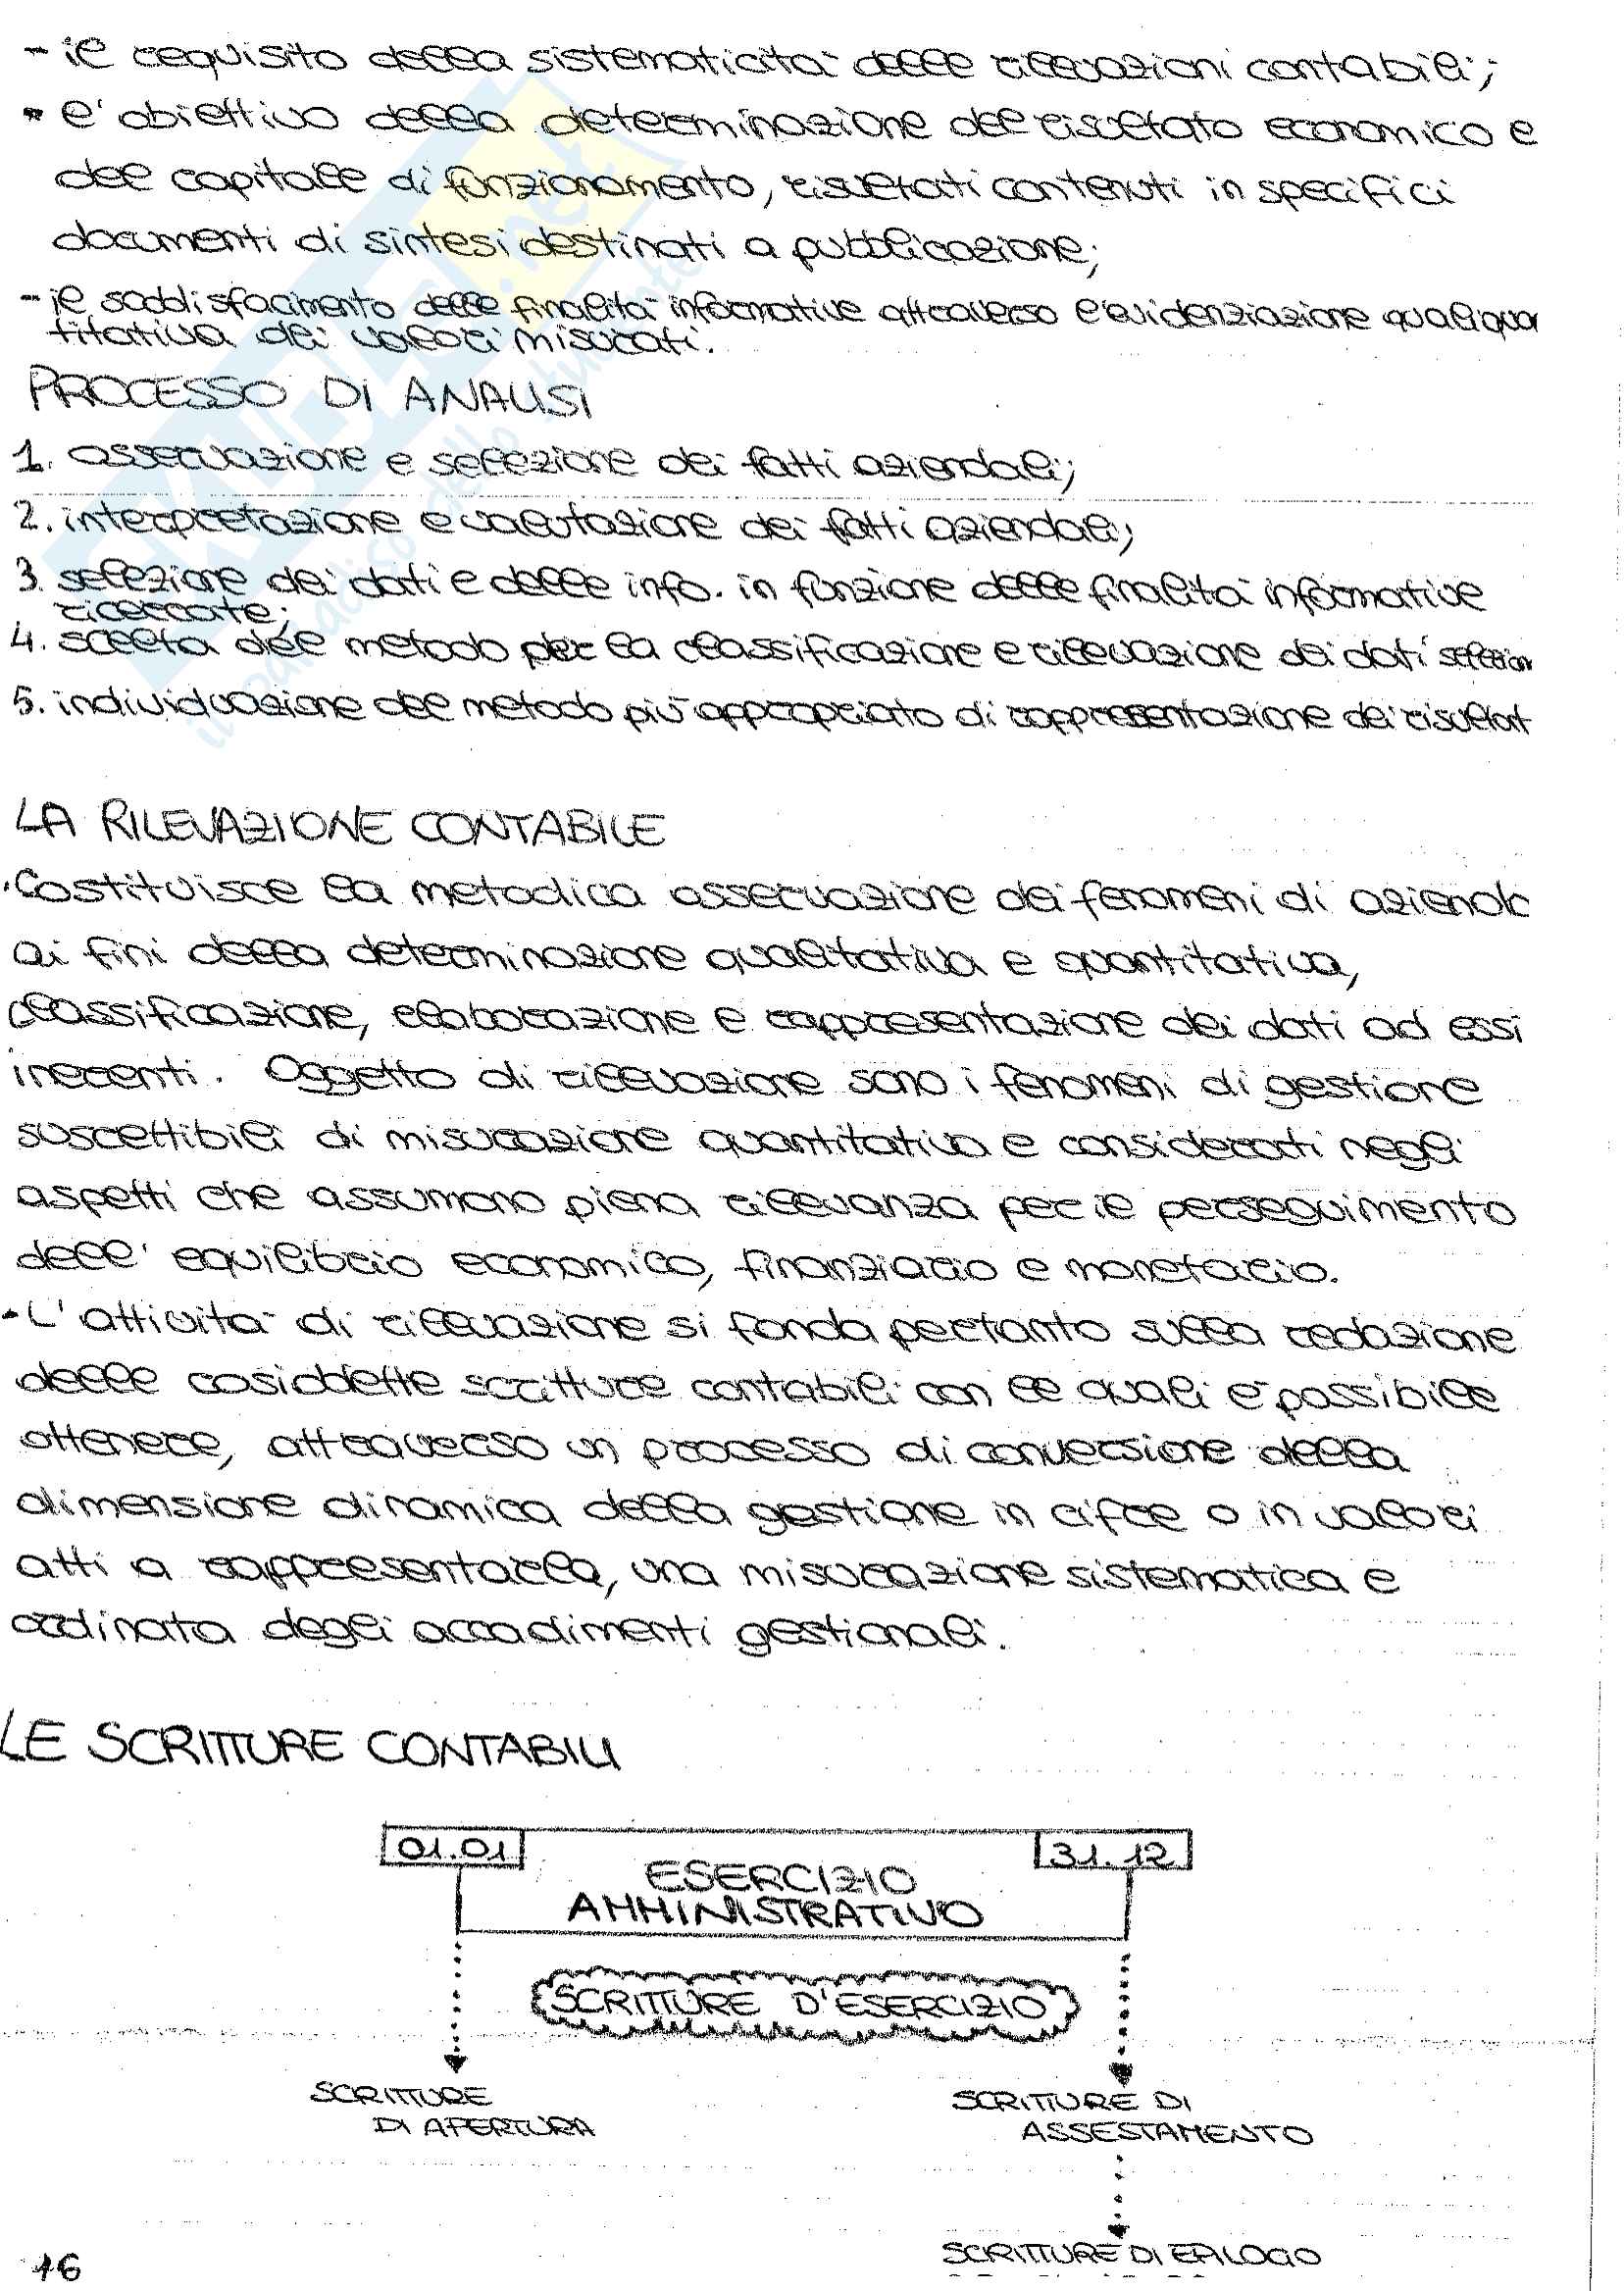 - il requisito della sistematicità delle rilevazioni contabili;
- l'obiettivo della determinazione del risultato economico e
del capitale di funzionamento, risultati contenuti in specifici
documenti di sintesi destinati a pubblicazione;
- il soddisfacimento delle finalità informative attraverso l'evidenziazione qualiquan
titativa dei valori misurati.
PROCESSO DI ANALISI
1. osservazione e selezione dei fatti aziendali;
2. interpretazione e valutazione dei fatti aziendali;
3. selezione dei dati e delle info. in funzione delle finalità informative
ricercate;
4. scelta del metodo per la classificazione e rilevazione dei dati selezion
5. individuazione del metodo più appropriato di rappresentazione dei risultat
LA RILEVAZIONE CONTABILE
• Costituisce la metodica osservazione dei fenomeni di azienda
ai fini della determinazione qualitativa e quantitativa,
classificazione, elaborazione e rappresentazione dei dati ad essi
inerenti. Oggetto di rilevazione sono i fenomeni di gestione
suscettibili di misurazione quantitativa e considerati negli
aspetti che assumono piena rilevanza per il perseguimento
dell'equilibrio economico, finanziario e monetario.
• L'attività di rilevazione si fonda pertanto sulla redazione
delle cosiddette scritture contabili con le quali è possibile
ottenere, attraverso un processo di conversione della
dimensione dinamica della gestione in cifre o in valori
atti a rappresentarla, una misurazione sistematica e
ordinata degli accadimenti gestionali.
LE SCRITTURE CONTABILI
01.01 31.12
ESERCIZIO
AMMINISTRATIVO
SCRITTURE D'ESERCIZIO
SCRITTURE
DI APERTURA
SCRITTURE DI
ASSESTAMENTO
SCRITTURE DI EPILOGO
16